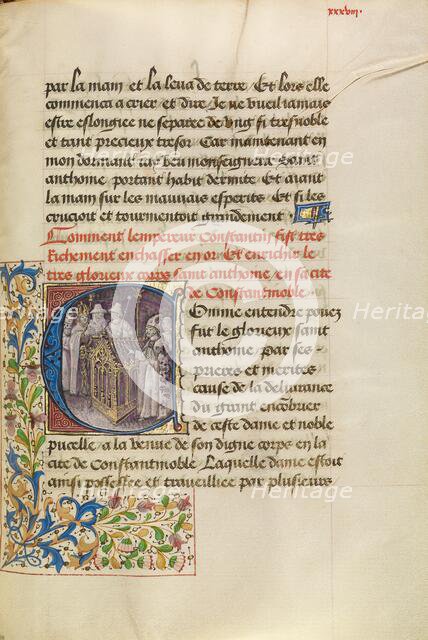 xxxviii.
par la main et la leua de terre / Et lors elle
commenca a crier et dire Je ne vueil iamais
estre eslongiee ne separee de vng si tresnoble
et tant precieux tresor Car maintenant en
mon dormant iay veu monseigneur Saint
anthoine portant habit dermite Et auant
la main sur les mauuais esperits Et si les
crucioit et tourmentoit grandement
Comment lempereur Constantin fist tres
Richement enchasser en or Et enrichir le
tres glorieux corps Saint anthoine en sa cite
de Constantinoble
Comme entendre pouez
fut le glorieux saint
anthoine par ses
prieres et merites
cause de la deliurance
du grant encombrier
de ceste dame et noble
pucelle a la venue de son digne corps en la
cite de Constantinoble Laquelle dame estoit
ainsi possessee et traueillee par plusieurs
Heritage
Heritage
Heritage
Heritage